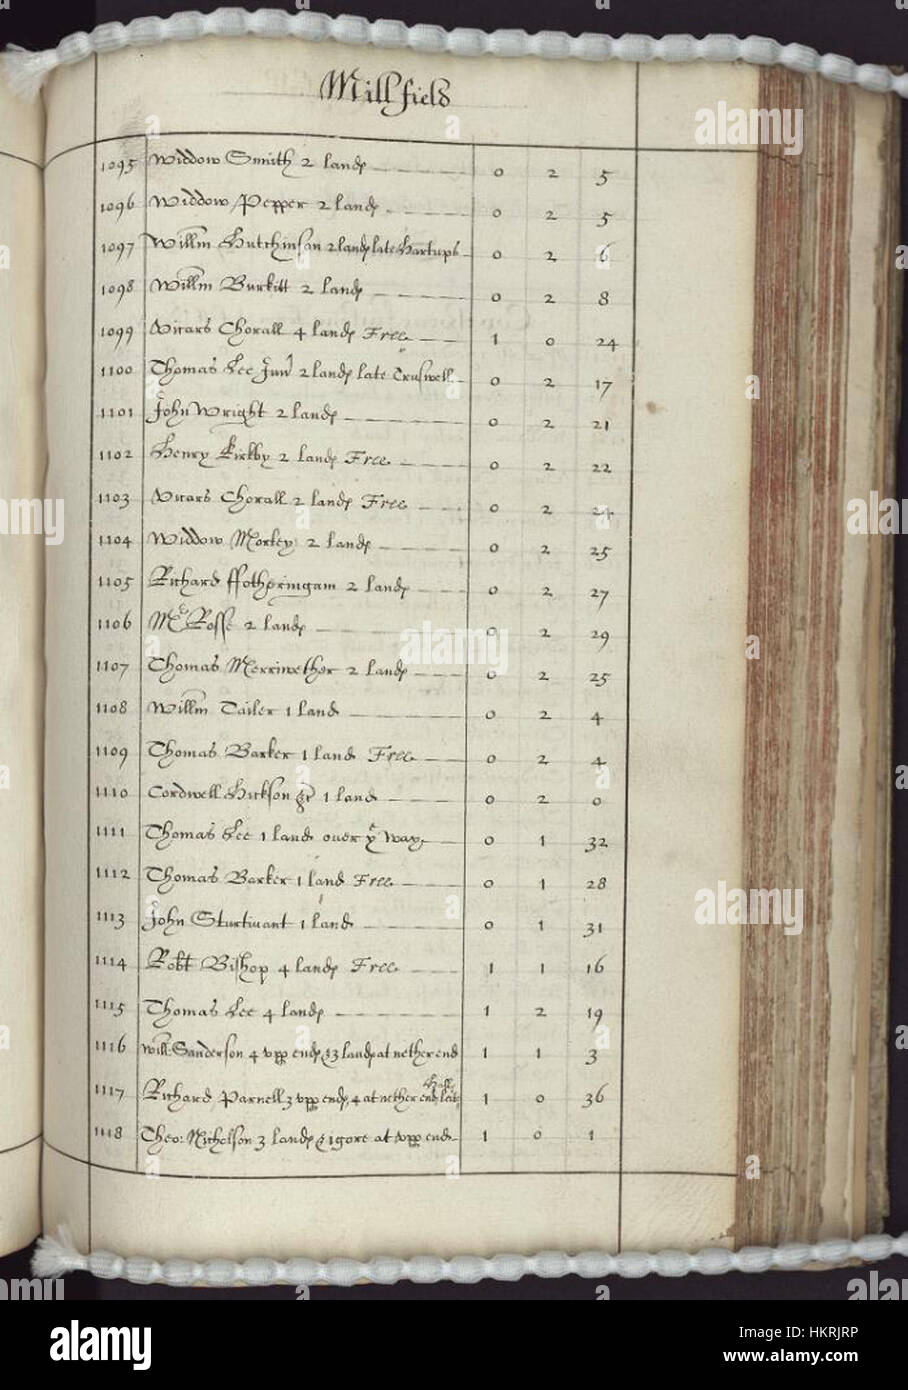 Millfield
1095 Widdow Smith 2 lands 0 2 5
1096 Widdow Pepper 2 lands 0 2 5
1097 Willm Hutchinson 2 lands late Hartups 0 2 6
1098 Willm Burkitt 2 lands 0 2 8
1099 Vicars Chorall 4 lands Free 1 0 24
1100 Thomas Lee Junr 2 lands late Truswell 0 2 17
1101 John Wright 2 lands 0 2 21
1102 Henry Kirkby 2 lands Free 0 2 22
1103 Vicars Chorall 2 lands Free 0 2 24
1104 Widdow Morley 2 lands 0 2 25
1105 Richard ffotheringam 2 lands 0 2 27
1106 Rosse 2 lands 0 2 29
1107 Thomas Merriwether 2 lands 0 2 25
1108 Willm Tailer 1 land 0 2 4
1109 Thomas Barker 1 land Free 0 2 4
1110 Cordwell Hickson 1 land 0 2 0
1111 Thomas Lee 1 land over ye way 0 1 32
1112 Thomas Barker 1 land Free 0 1 28
1113 John Sturtivant 1 land 0 1 31
1114 Robt Bishop 4 lands Free 1 1 16
1115 Thomas Lee 4 lands 1 2 19
1116 Will: Sanderson 4 upp ends & 3 lands at nether end 1 1 3
1117 Richard Parnell 3 upp ends, 4 at nether end late Hall 1 0 36
1118 Theo: Nicholson 3 lands & 1 gore at upp end 1 0 1
alamy
a
Image ID: HKRJRP
www.alamy.com